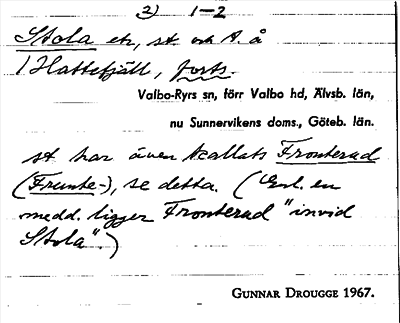 2) 1-2
Stola etc, st. och t. å
/ Hattefjäll, forts.
Valbo-Ryrs sn, förr Valbo hd, Älvsb. län,
nu Sunnervikens doms., Göteb. län.
st. har även kallats Fronterud
(Frunte-), se detta. (Enl. en
medd. ligger Fronterud "invid
Stola".)
GUNNAR DROUGGE 1967.